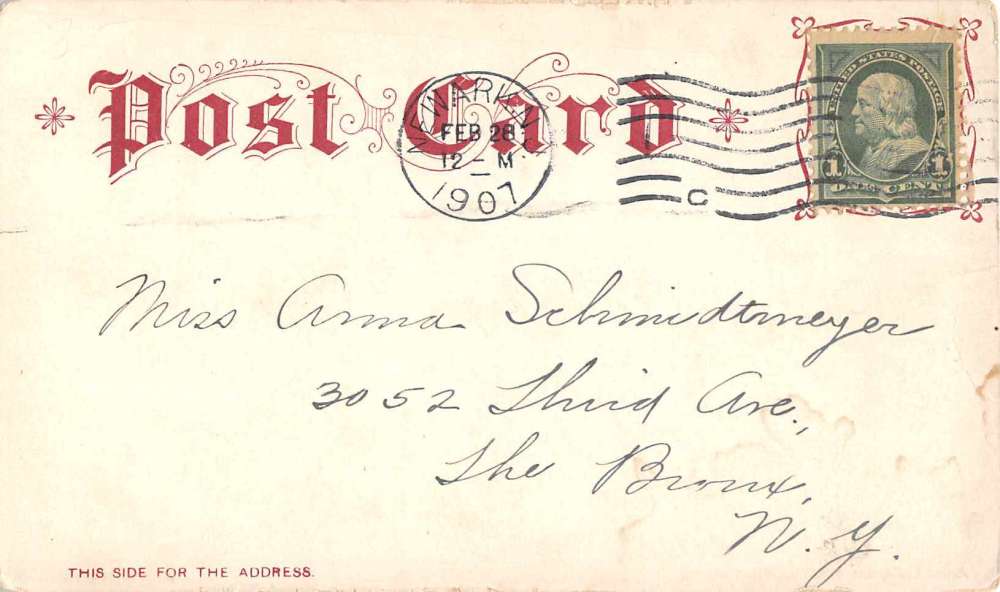 Post Card
NEWARK, N.J.
FEB 28
12 - M
1907
C
UNITED STATES POSTAGE
1 1
ONE CENT
Miss Anna Schmidtmeyer
3052 Third Ave.,
The Bronx,
N. Y.
THIS SIDE FOR THE ADDRESS.